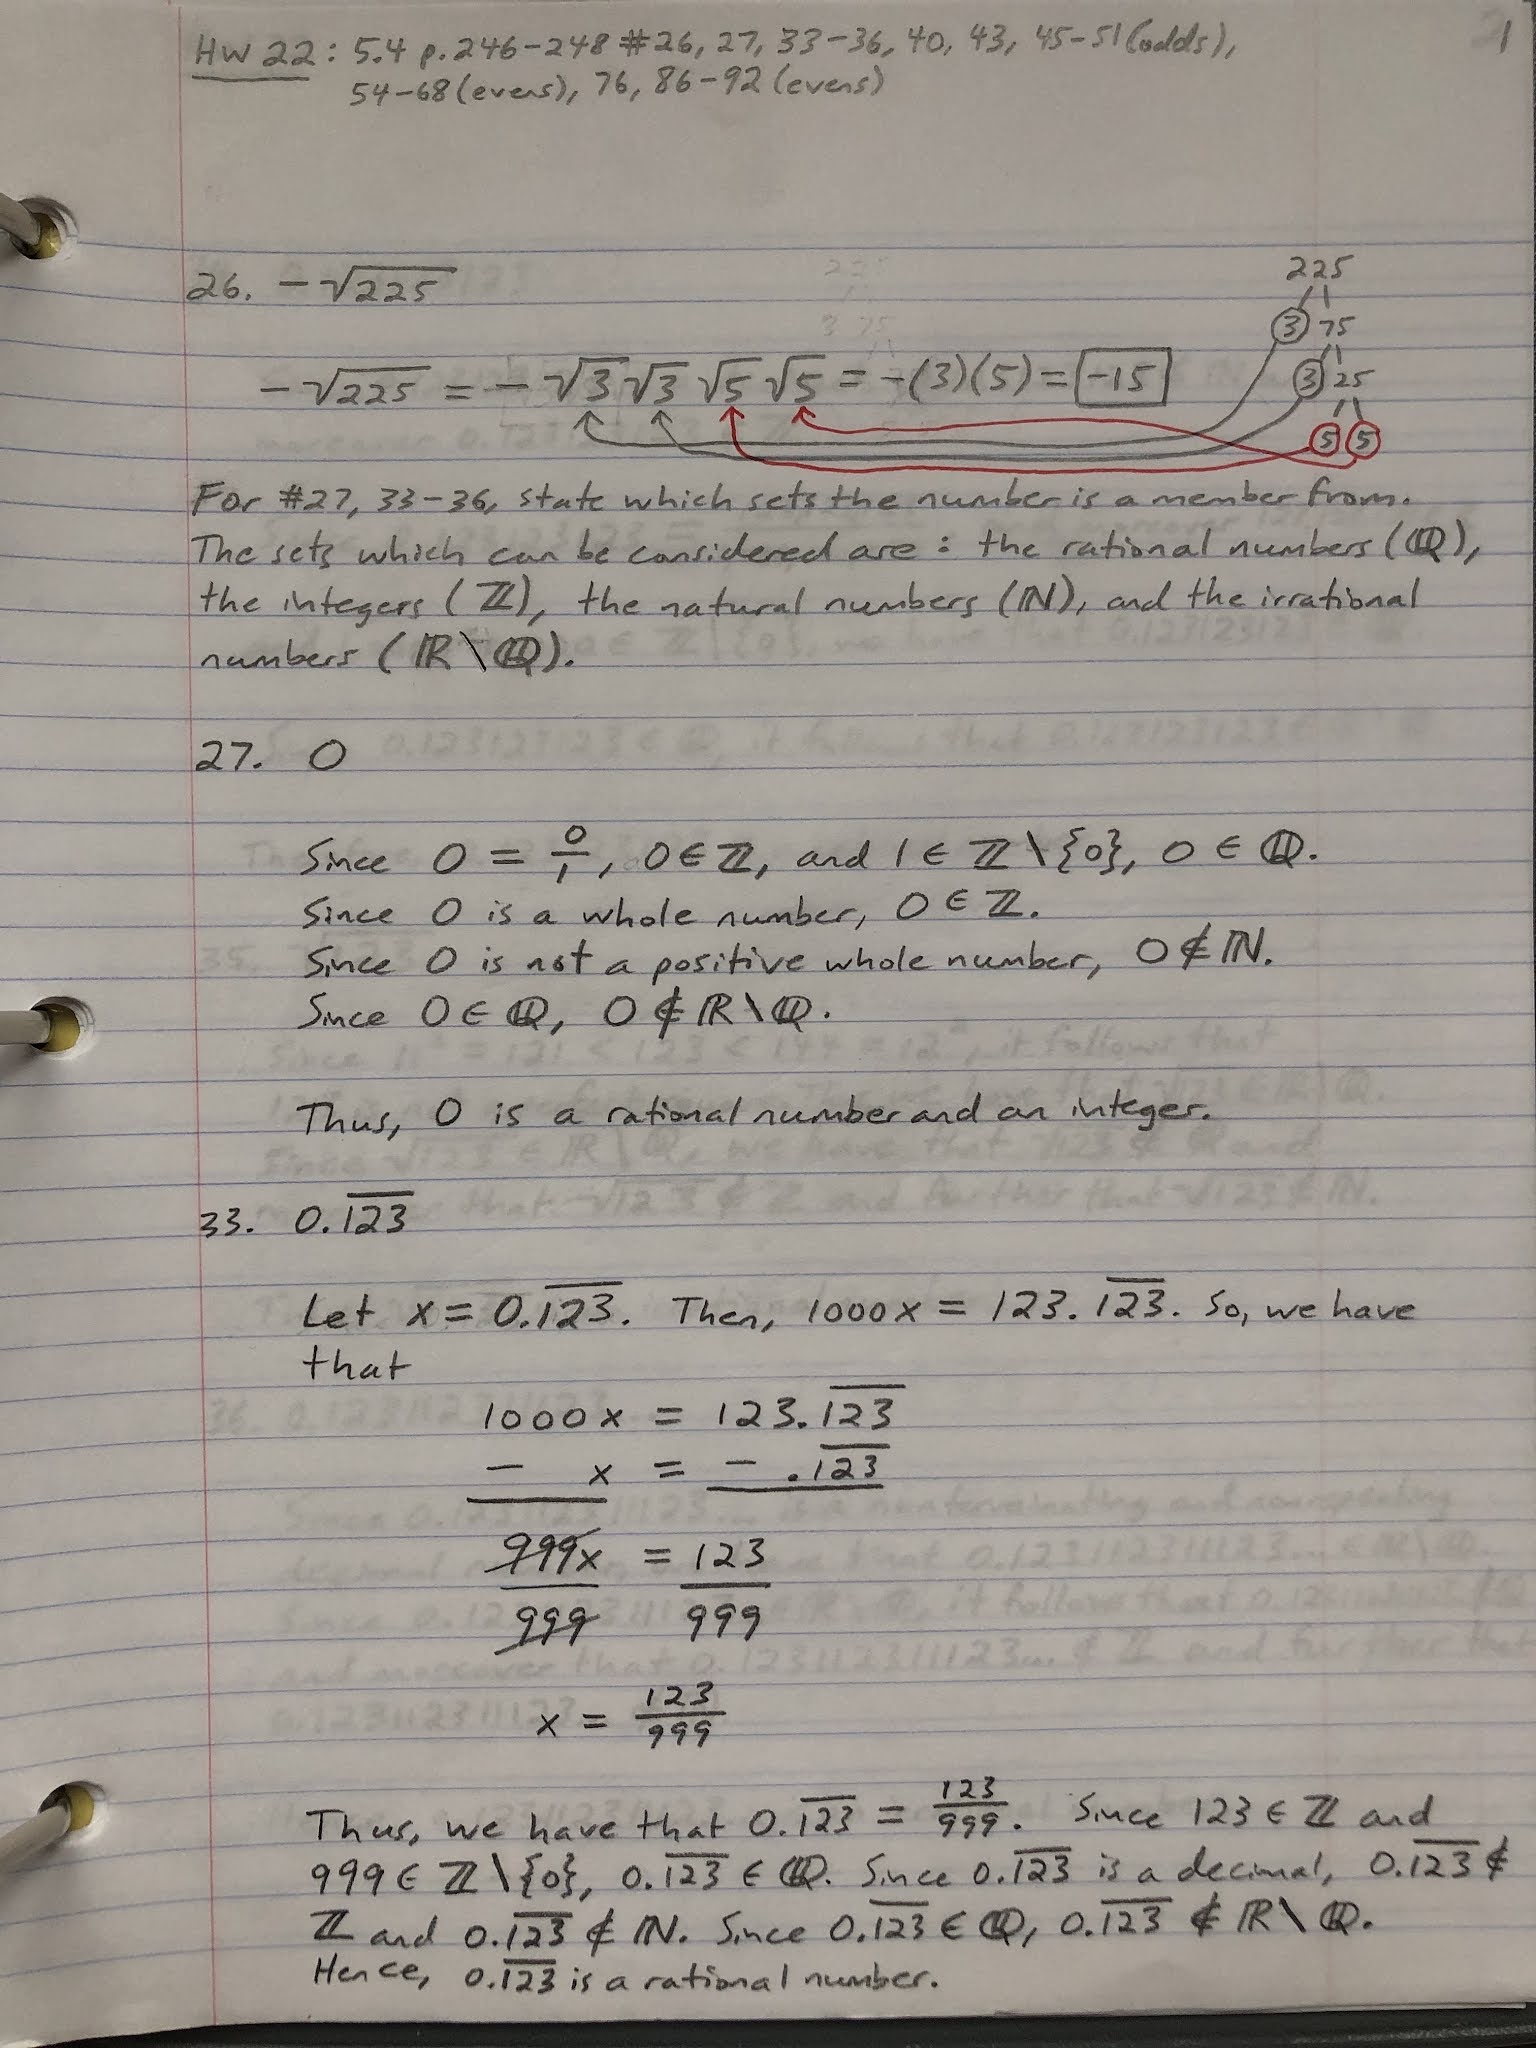 HW 22: 5.4 p.246-248 #26, 27, 33-36, 40, 43, 45-51 (odds),
1
54-68 (evens), 76, 86-92 (evens)
26. -√225
225
3 75
3 25
5 5
-√225 = -√3 √3 √5 √5 = -(3)(5) = -15
For #27, 33-36, state which sets the number is a member from.
The sets which can be considered are: the rational numbers (ℚ),
the integers (ℤ), the natural numbers (ℕ), and the irrational
numbers (ℝ\ℚ).
27. 0
Since 0 = 0/1, 0∈ℤ, and 1∈ℤ\{0}, 0∈ℚ.
Since 0 is a whole number, 0∈ℤ.
Since 0 is not a positive whole number, 0∉ℕ.
Since 0∈ℚ, 0∉ℝ\ℚ.
Thus, 0 is a rational number and an integer.
33. 0.1̅2̅3̅
Let x = 0.1̅2̅3̅. Then, 1000x = 123.1̅2̅3̅. So, we have
that
1000x = 123.1̅2̅3̅
- x = - .1̅2̅3̅
999x = 123
999 999
x = 123/999
Thus, we have that 0.1̅2̅3̅ = 123/999. Since 123∈ℤ and
999∈ℤ\{0}, 0.1̅2̅3̅∈ℚ. Since 0.1̅2̅3̅ is a decimal, 0.1̅2̅3̅∉
ℤ and 0.1̅2̅3̅∉ℕ. Since 0.1̅2̅3̅∈ℚ, 0.1̅2̅3̅∉ℝ\ℚ.
Hence, 0.1̅2̅3̅ is a rational number.